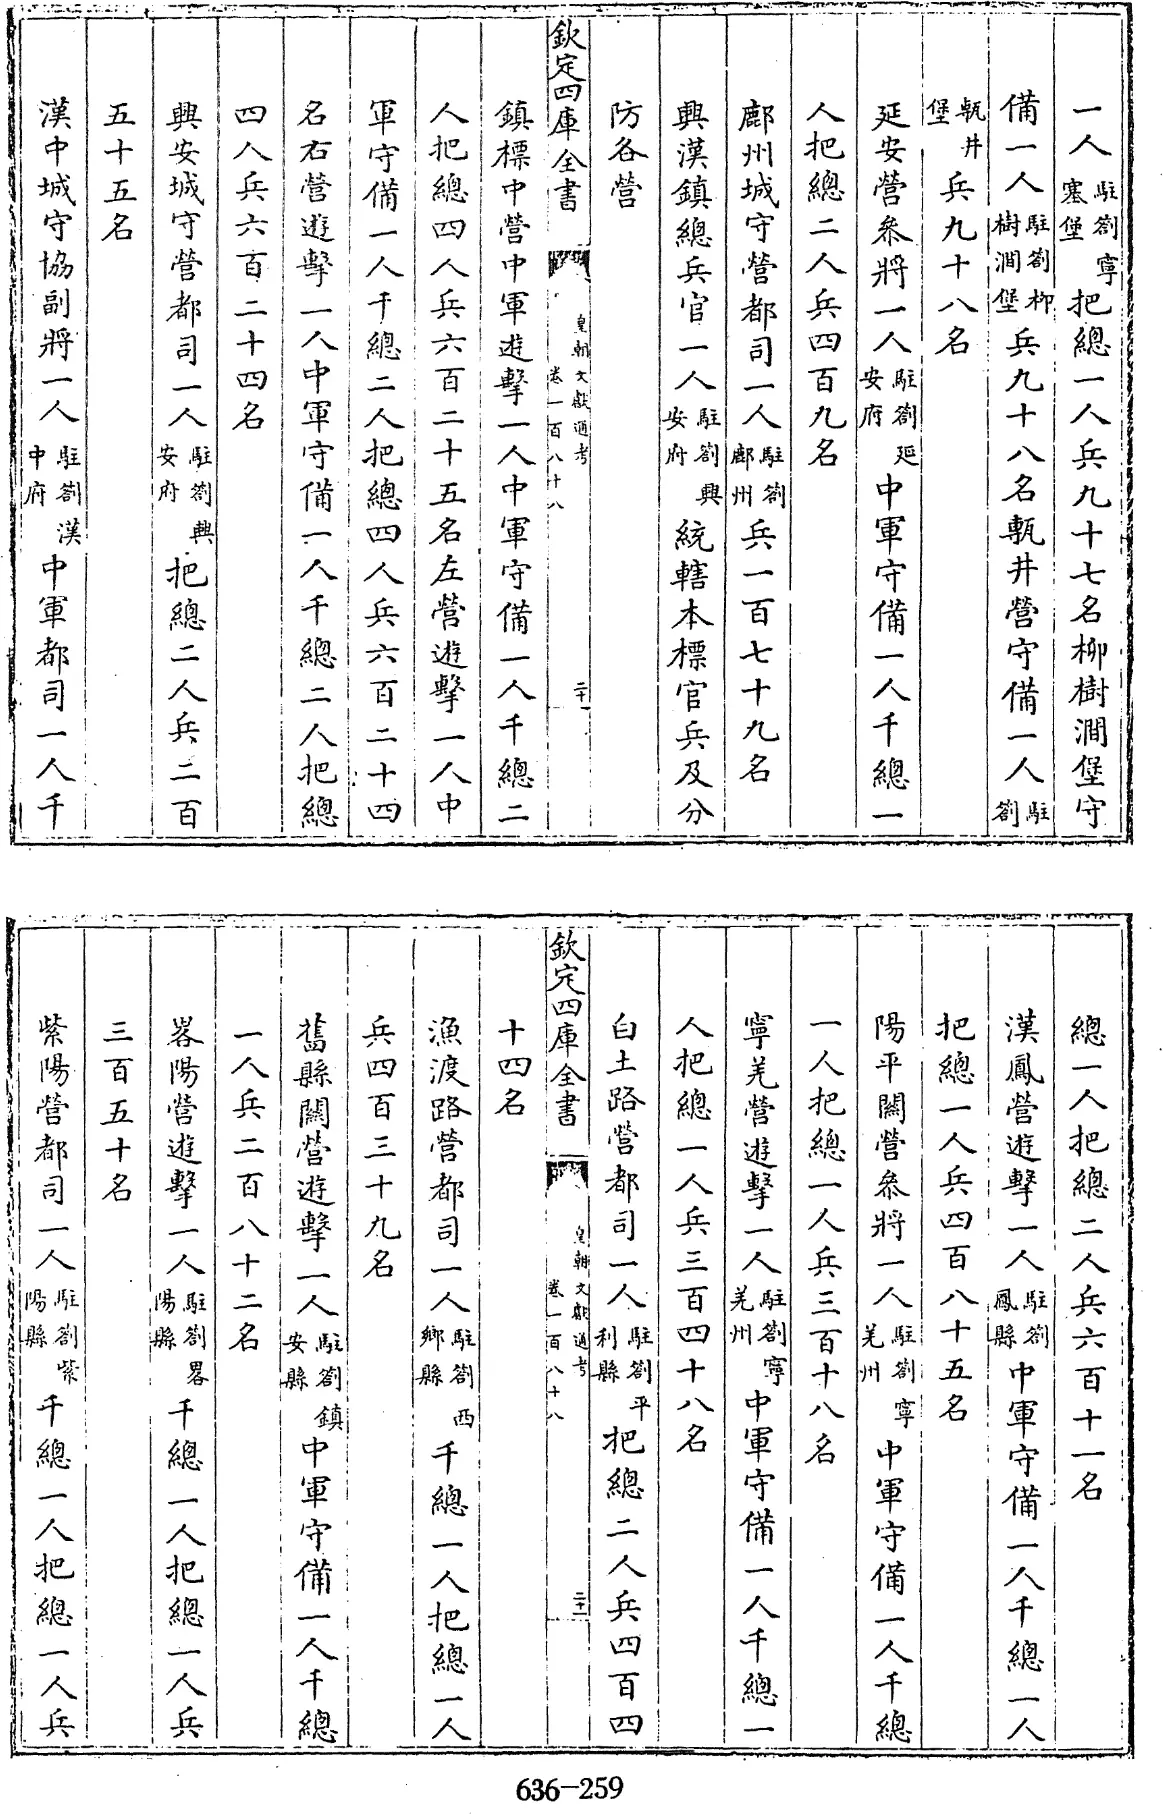 一人駐劄寧塞堡把總一人兵九十七名柳樹澗堡守
備一人駐劄柳樹澗堡兵九十八名甎井營守備一人駐劄
甎井堡兵九十八名
延安營叅將一人駐劄延安府中軍守備一人千總一
人把總二人兵四百九名
鄜州城守營都司一人駐劄鄜州兵一百七十九名
興漢鎮總兵官一人駐劄興安府統轄本標官兵及分
防各營
欽定四庫全書 皇朝文獻通考 卷一百八十八 二十一
鎮標中營中軍遊擊一人中軍守備一人千總二
人把總四人兵六百二十五名左營遊擊一人中
軍守備一人千總二人把總四人兵六百二十四
名右營遊擊一人中軍守備一人千總二人把總
四人兵六百二十四名
興安城守營都司一人駐劄興安府把總二人兵二百
五十五名
漢中城守協副將一人駐劄漢中府中軍都司一人千
總一人把總二人兵六百十一名
漢鳳營遊擊一人駐劄鳳縣中軍守備一人千總一人
把總一人兵四百八十五名
陽平關營叅將一人駐劄寧羌州中軍守備一人千總
一人把總一人兵三百十八名
寧羌營遊擊一人駐劄寧羌州中軍守備一人千總一
人把總一人兵三百四十八名
白土路營都司一人駐劄平利縣把總二人兵四百四
欽定四庫全書 皇朝文獻通考 卷一百八十八 二十二
十四名
漁渡路營都司一人駐劄西鄉縣千總一人把總一人
兵四百三十九名
舊縣關營遊擊一人駐劄鎮安縣中軍守備一人千總
一人兵二百八十二名
畧陽營遊擊一人駐劄畧陽縣千總一人把總一人兵
三百五十名
紫陽營都司一人駐劄紫陽縣千總一人把總一人兵
636-259